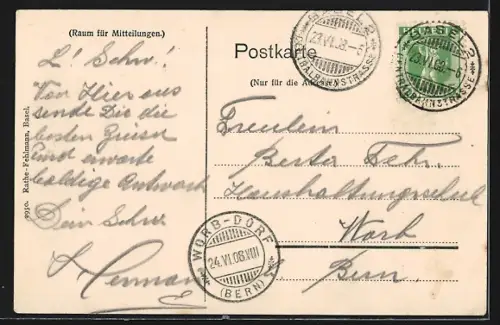 (Raum für Mitteilungen.)
Postkarte
(Nur für die Adresse)
BASEL 2
23.VI.08.-6
ZENTRALBAHNSTRASSE
BASEL 2
23.VI.08.-6
ZENTRALBAHNSTRASSE
L! Schw.!
Von Hier aus
sende Dir die
besten Grüsse
und erwarte
baldige Antwort
Dein Schw.
Hermann
Fräulein
Berta Fehr.
Haushaltungsschule
Worb
Bern
WORB-DORF
24.VI.08.VIII
(BERN)
9910. Rathe-Fehlmann, Basel.